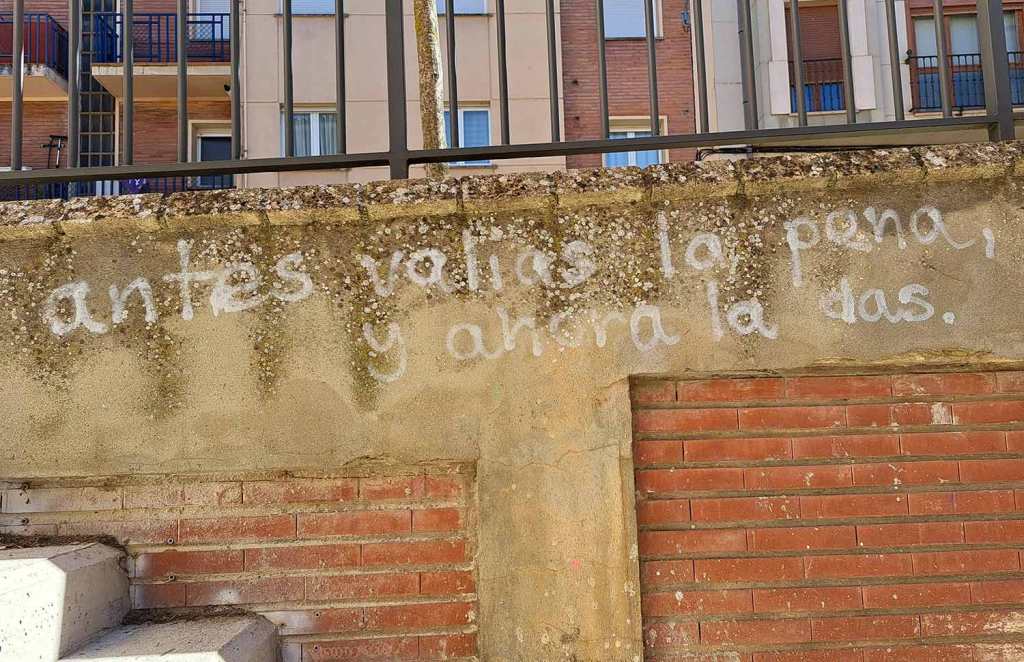 antes valias la pena,
y ahora la das.